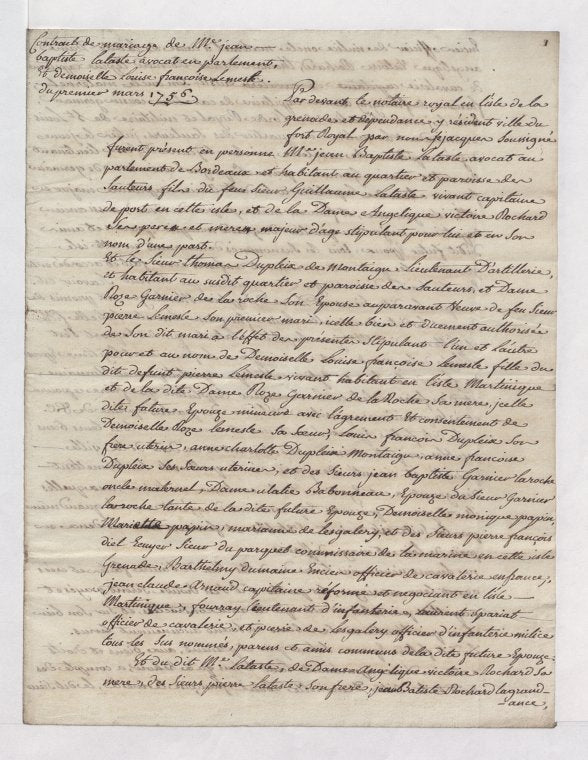 Contrat de mariage de Me. jean
baptiste Lataste avocat en parlement,
Et demoiselle Louise françoise Lemesle.
du premier mars 1756.
1
Par devant le notaire royal en L'isle de la
grenade et dépendance y résident ville du
fort Royal par nom Soussigné
furent présent en personne Me. jean Baptiste Lataste avocat au
parlement de Bordeaux et habitant au quartier et paroisse des
Sauteurs fils du feu Sieur Guillaume Lataste vivant capitaine
de port en cette isle, et de la Dame Angelique victoire Rochard
Ses pere et mere majeur d'age stipulant pour lui et en Son
nom d'une part.
Et le Sieur thomas Dupleix de Montaigu Lieutenant D'artillerie,
et habitant au susdit quartier et paroisse des Sauteurs, et Dame
Roze Garnier de la roche Son Epouse auparavant Veuve de feu Sieur
pierre Lemesle Son premier mari, icelle bien et duement authorisée
de Son dit mari a l'effet des presentes Stipulant l'un et l'autre
pour et au nom de Demoiselle Louise françoise Lemesle fille du
dit defunt pierre Lemesle vivant habitant en l'isle Martinique
et de la dite Dame Roze Garnier de la Roche Sa mere, icelle
dite future Epouze mineure avec l'agrement et consentement de
Demoiselle Roze Lemesle Sa Sœur, Louis françois Dupleix Son
frere uterin, anne charlotte Dupleix Montaigu, anne françoise
Dupleix Ses Sœurs uterine, et des Sieurs jean baptiste Garnier laroche
oncle maternel, Dame Babonneau, Epouze du Sieur Garnier
laroche tante de la dite future Epouze, Demoiselle monique papin,
papin, marianne de Lesgalery, et des Sieurs pierre françois
diel Ecuyer Sieur du parquet commissaire de la marine en cette isle
Grenade, Barthelmy dumaine Encien officier de cavalerie en france,
jean claude Arnaud capitaine réformé et negociant en l'isle
Martinique, fourray Lieutenant d'infanterie, Laurent Spariat
officier de cavalerie, et pierre de Lesgalery officier d'infanterie milice
tous les Sus nommés, parens et amis communs de la dite future Epouze.
Et du dit Me. Lataste, de Dame Angelique victoire Rochard Sa
mere, des Sieurs pierre Lataste, Son frere, jean Batiste Rochard lagrand-
ance,